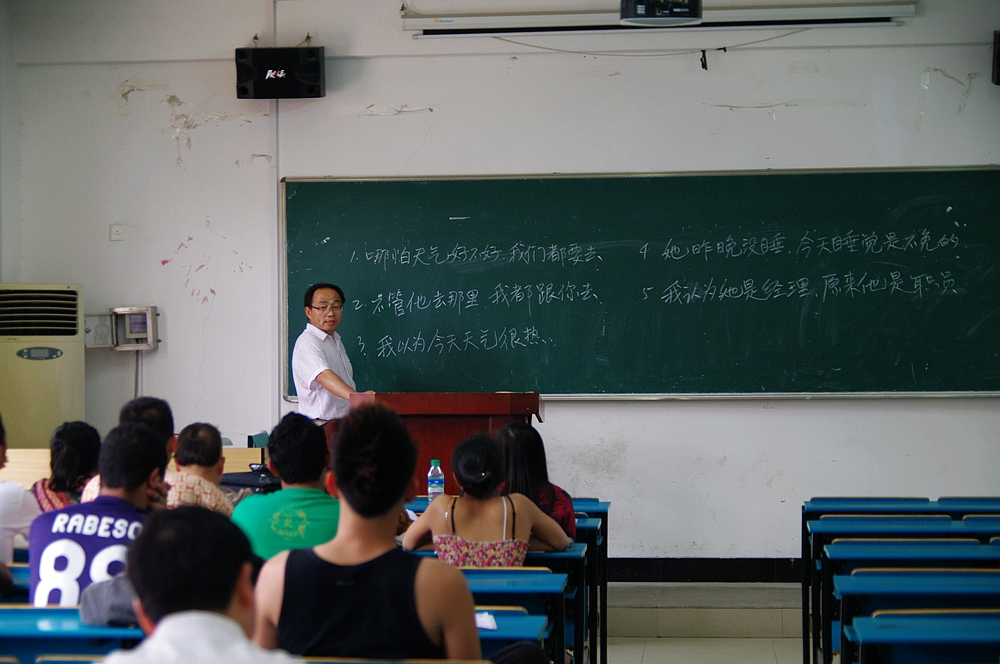 1. 哪怕天气好不好,我们都要去.
2. 不管他去那里,我都跟你去.
3. 我以为今天天气很热.
4 她昨晚没睡,今天睡觉是不免的.
5 我认为她是经理,原来他是职员.
RABESC
89